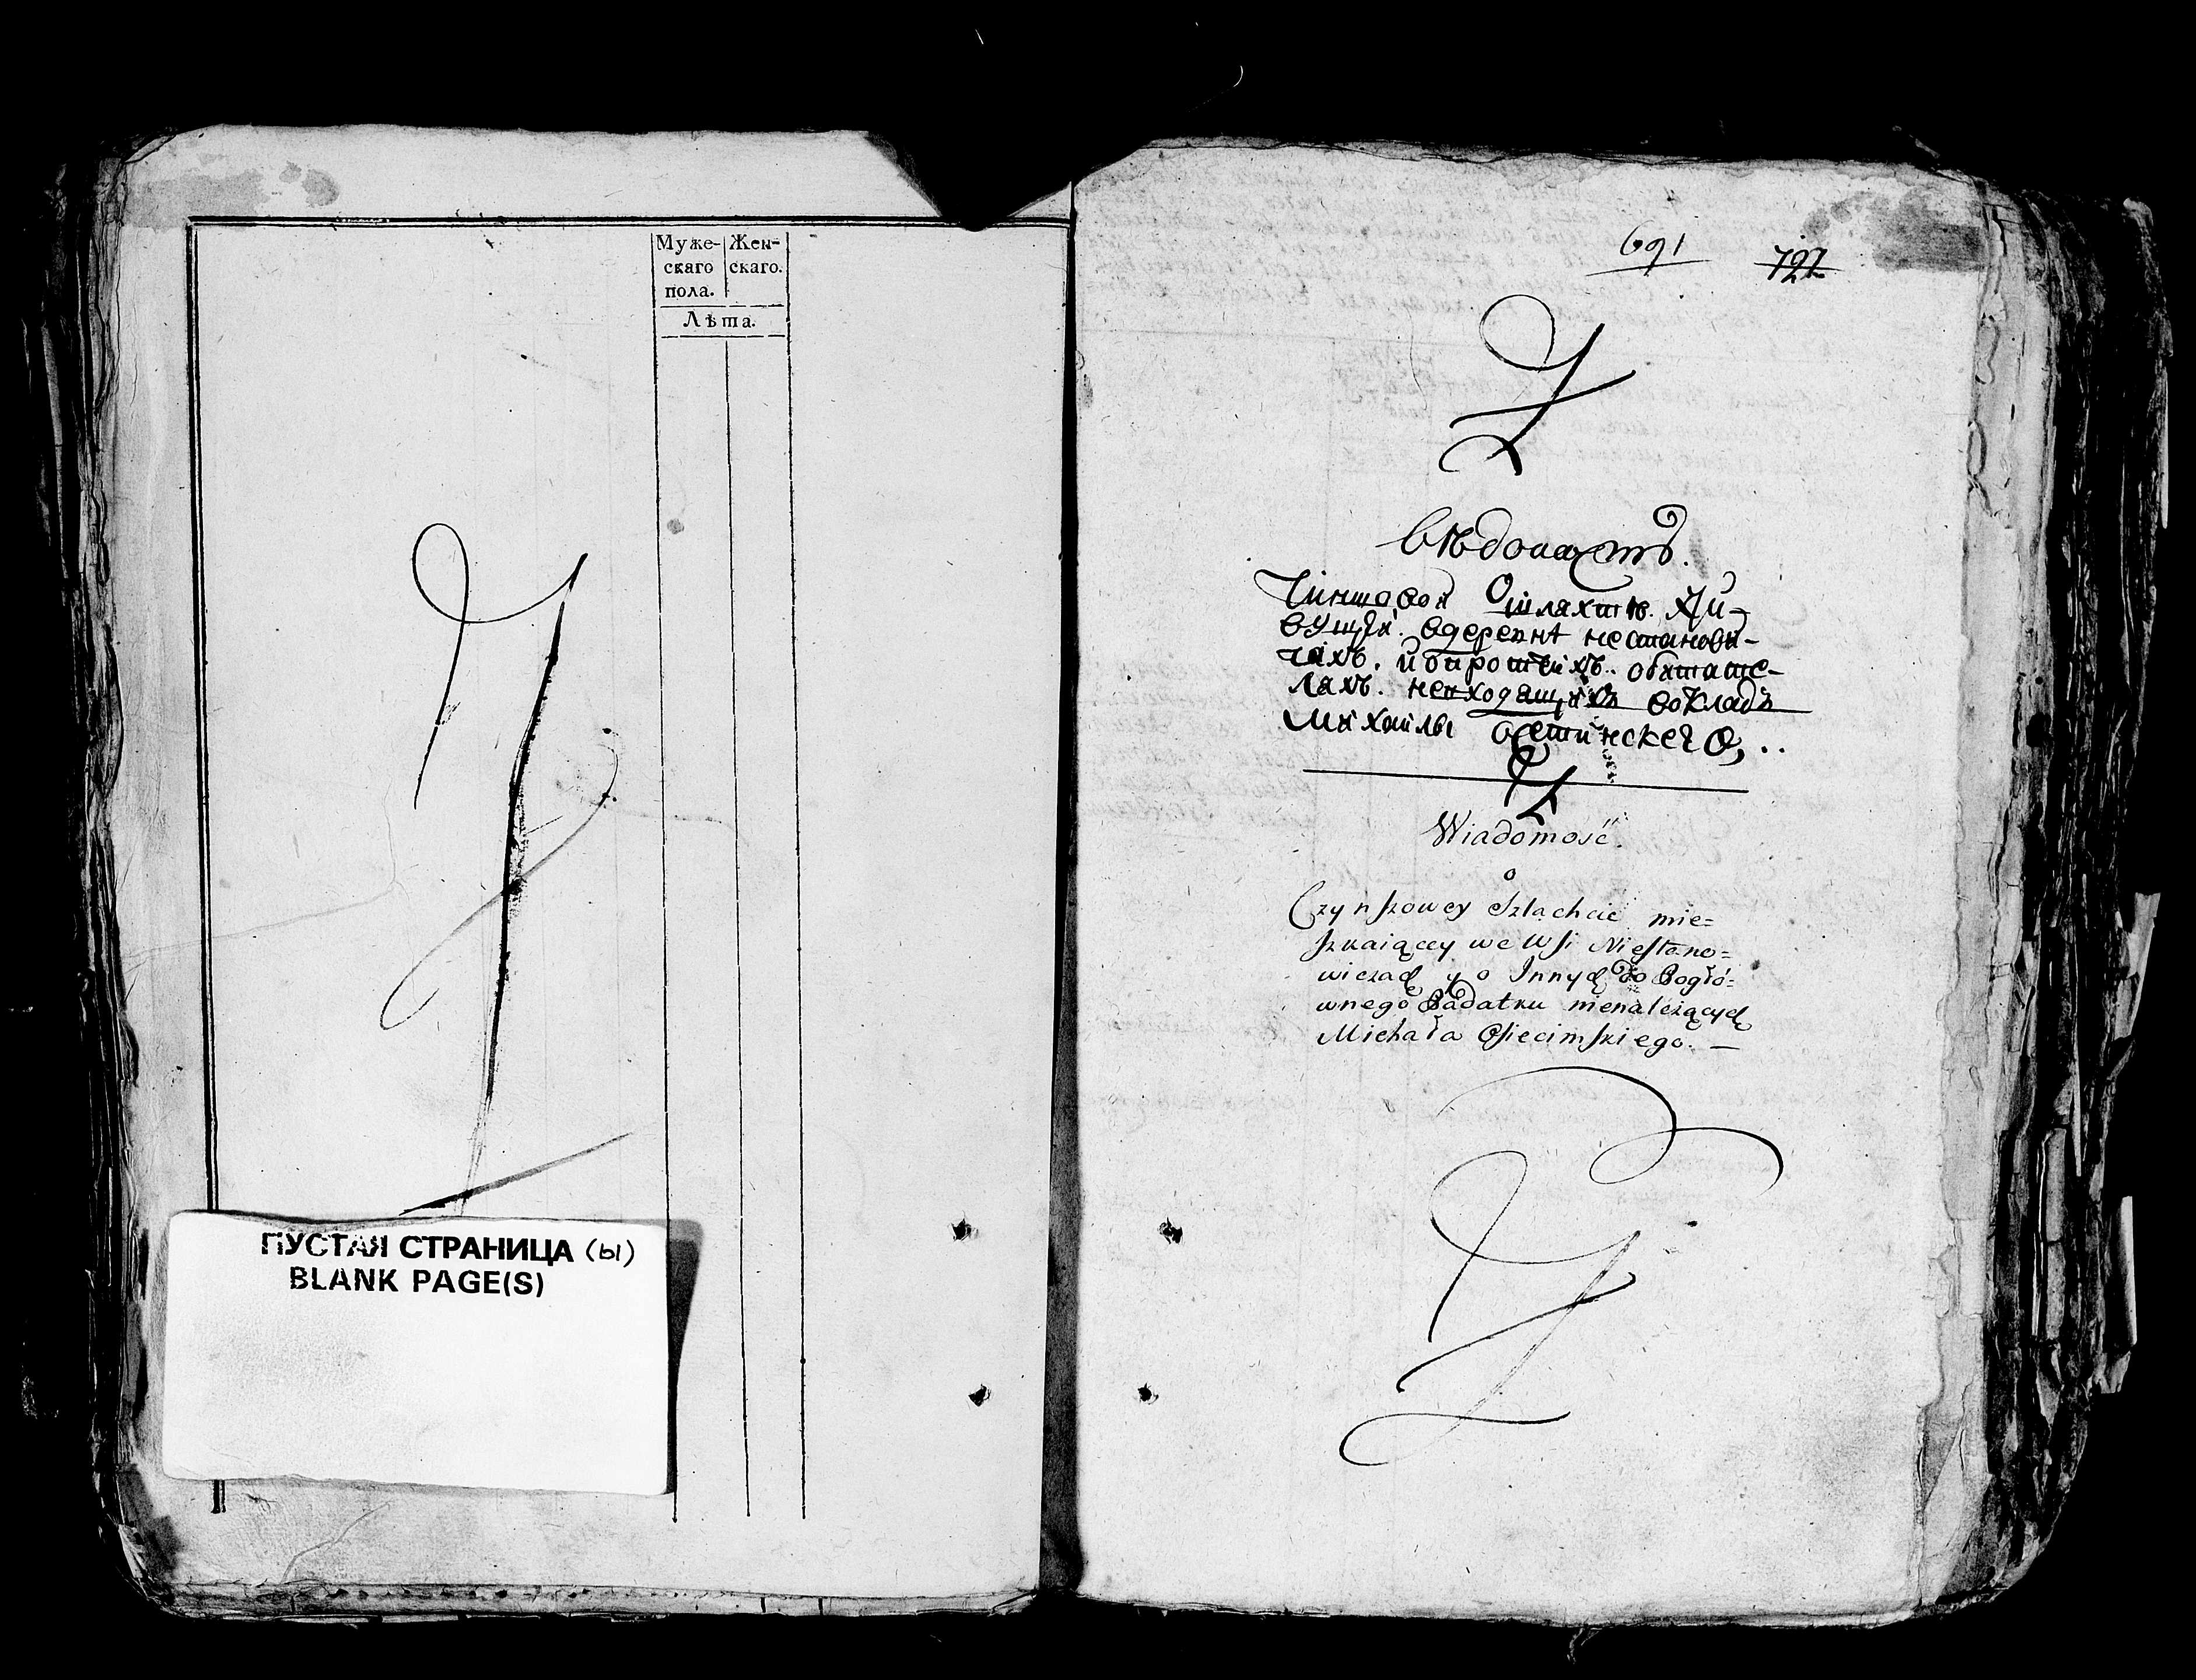 Муже-
скаго
пола.
Жен-
скаго.
Лѣта.
ПУСТАЯ СТРАНИЦА (ы)
BLANK PAGE(S)
691
727
вѣдомость.
Чиншовой Ошляхтѣ. Жи-
вущей. вдеревнѣ нестанови-
чахъ. ипротчихъ. обитате-
ляхъ. невходящихъ вокладъ
Михаилы
Wiadomość.
o
Czynszowey Szlachcie mie=
szkaiącey we Wsi Niestano=
wiczach y o Innych do Pogłó=
wnego Podatku nienależących
Michała Osiecimskiego. —